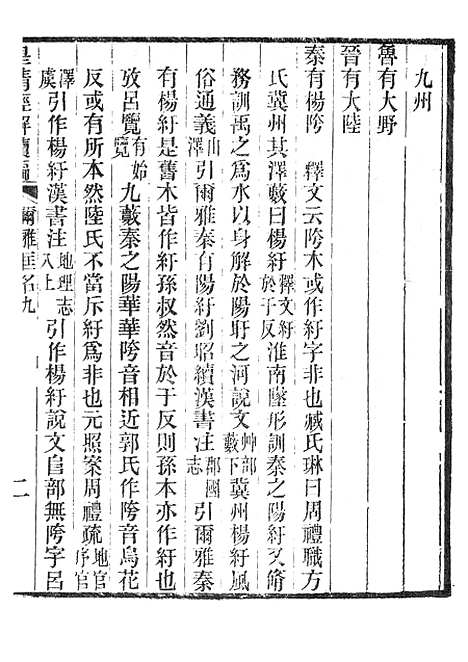 九州
魯有大野
晉有大陸
秦有楊陓　釋文云陓本或作紆字非也臧氏琳曰周禮職方
氏冀州其澤藪曰楊紆釋文紆於于反淮南墬形訓秦之陽紆又脩
務訓禹之爲水以身解於陽盱之河說文艸部藪下冀州楊紆風
俗通義山澤引爾雅秦有陽紆劉昭續漢書注郡國志引爾雅秦
有楊紆是舊本皆作紆孫叔然音於于反則孫本亦作紆也
攷呂覽有始覽九藪秦之陽華華陓音相近郭氏作陓音烏花
反或有所本然陸氏不當斥紆爲非也元照案周禮疏地官序官
澤虞引作楊紆漢書注地理志八上引作楊紆說文𨸏部無陓字呂
皇清經解續編　爾雅匡名九　二